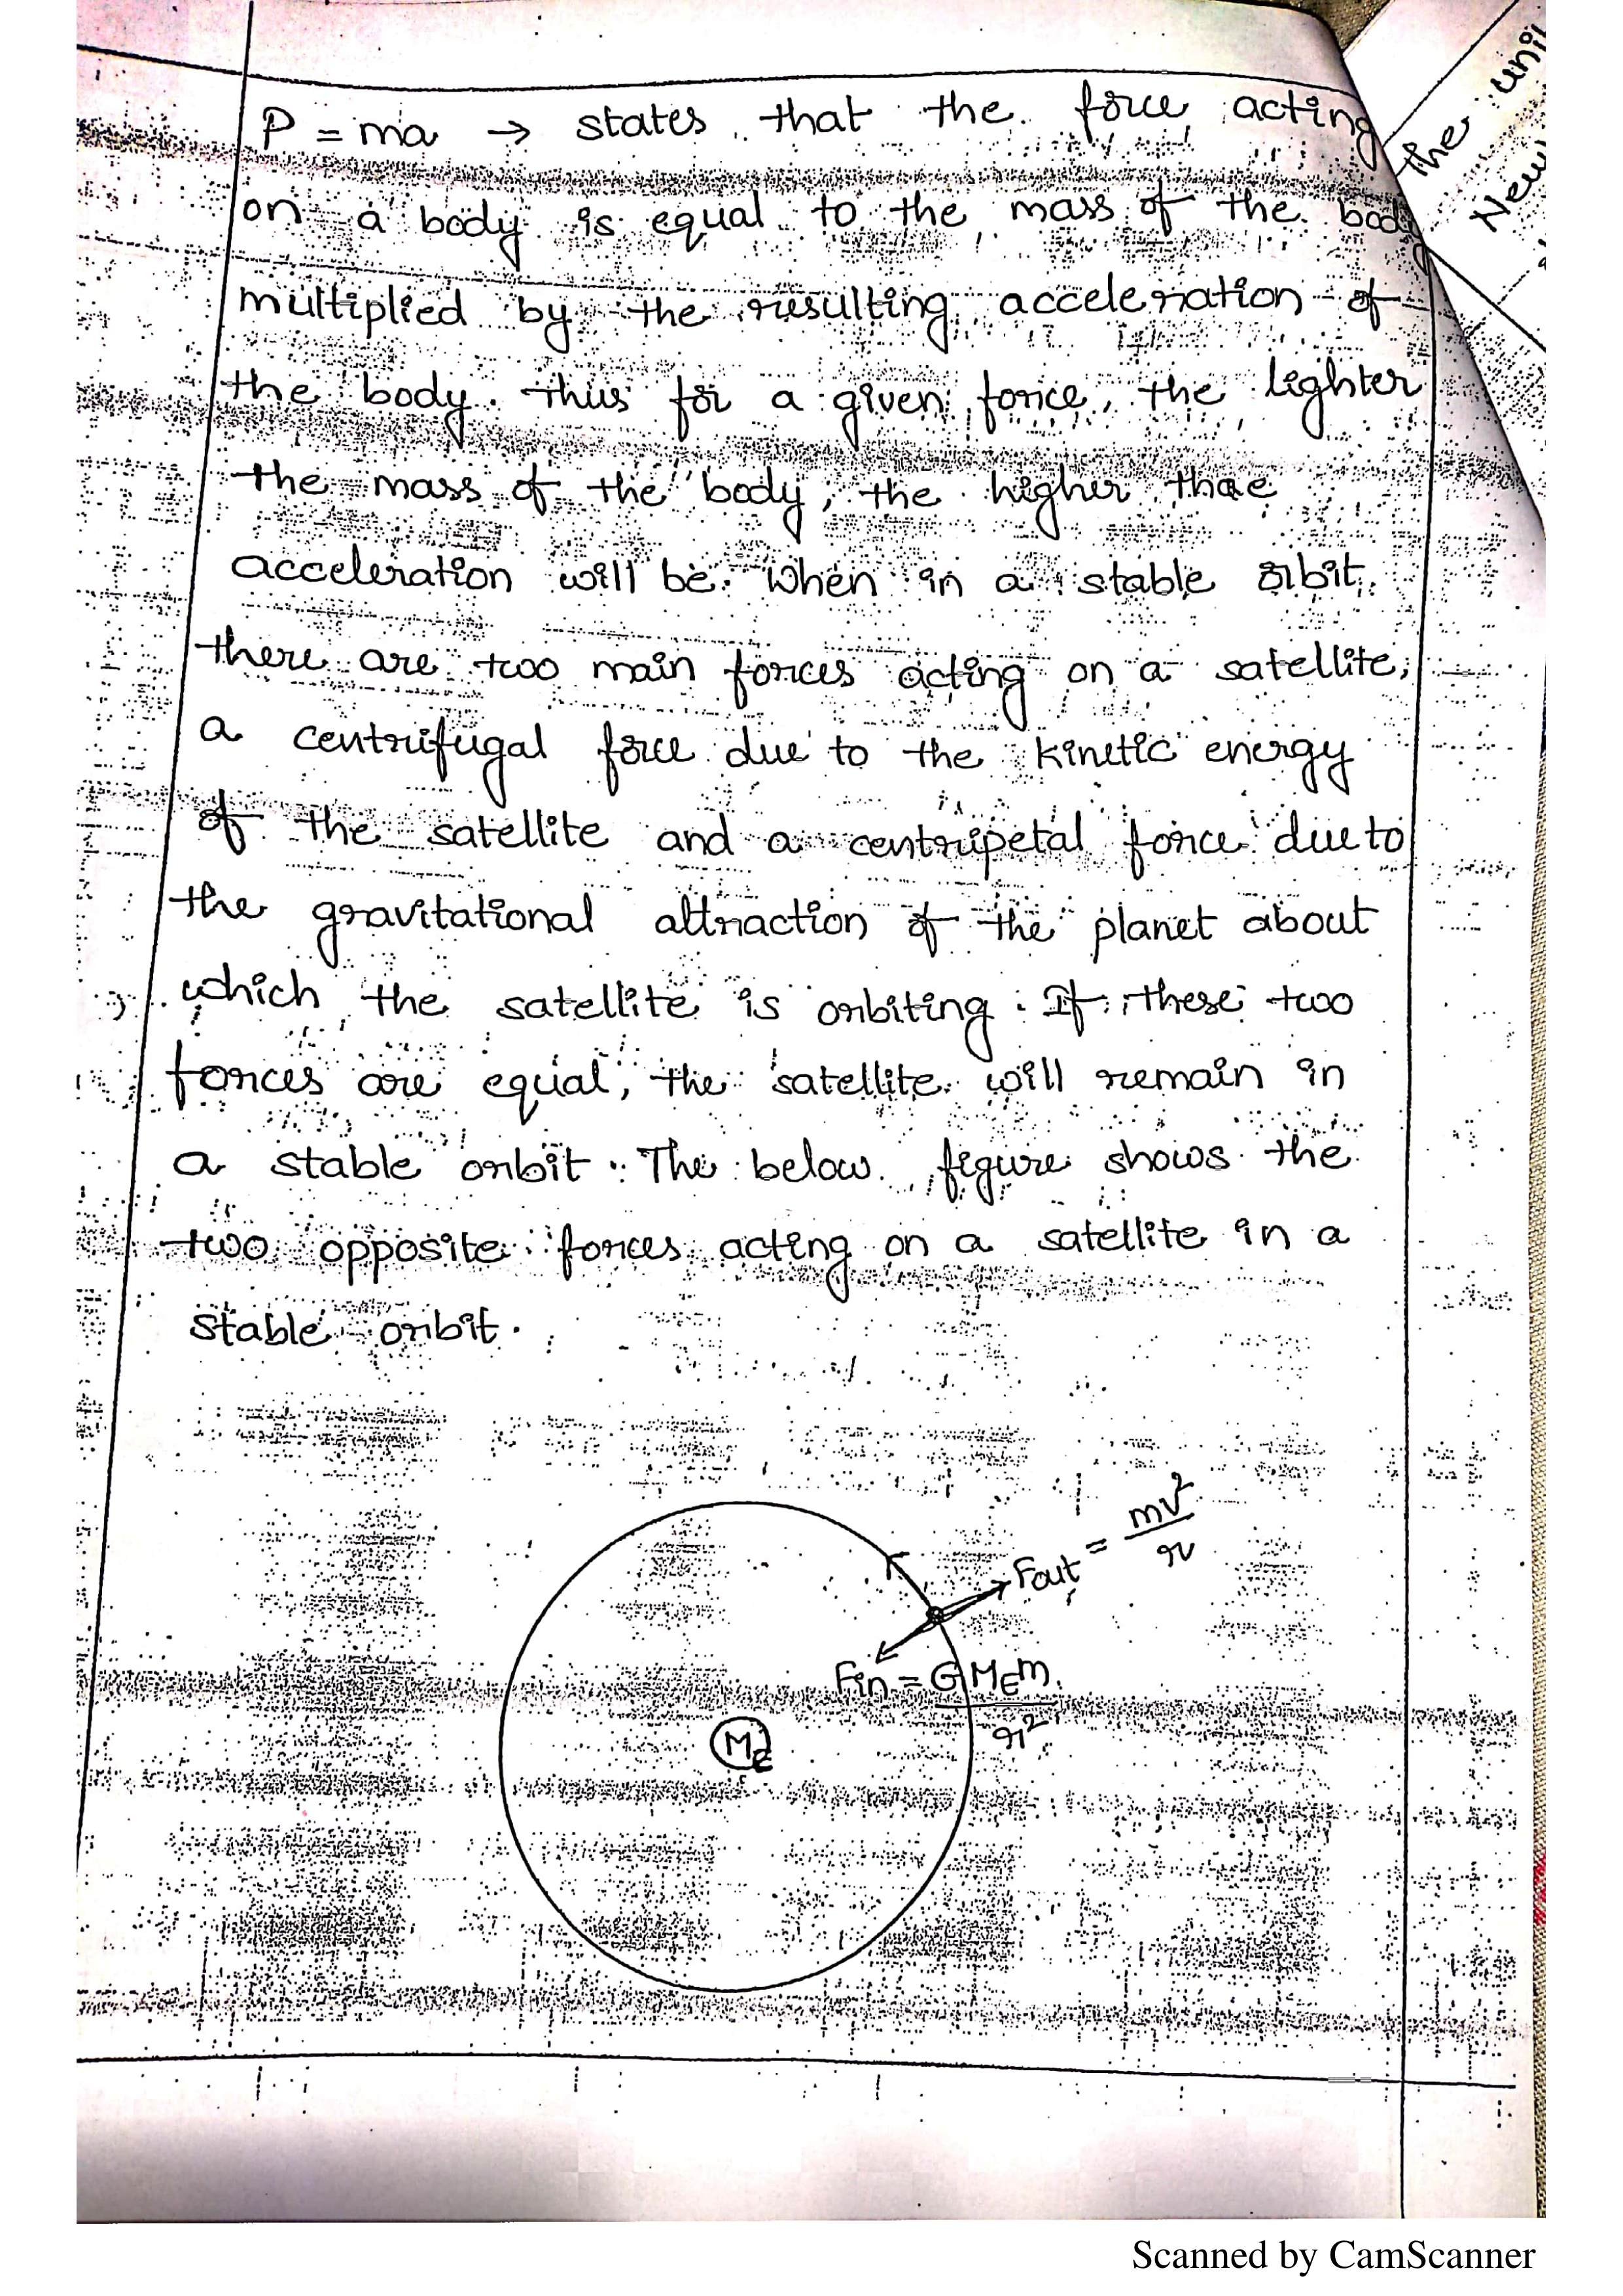 P = ma → states that the force acting
on a body is equal to the mass of the body
multiplied by the resulting acceleration of
the body. thus for a given force, the lighter
the mass of the body, the higher thae
acceleration will be. When in a stable orbit,
there are two main forces acting on a satellite,
a centrifugal force due to the kinetic energy
of the satellite and a centripetal force due to
the gravitational attraction of the planet about
which the satellite is orbiting. If these two
forces are equal, the satellite will remain in
a stable orbit. The below figure shows the
two opposite forces acting on a satellite in a
stable orbit.
Fout = mv²/r
Fin = GMEm/r²
ME
the uni
New
Scanned by CamScanner